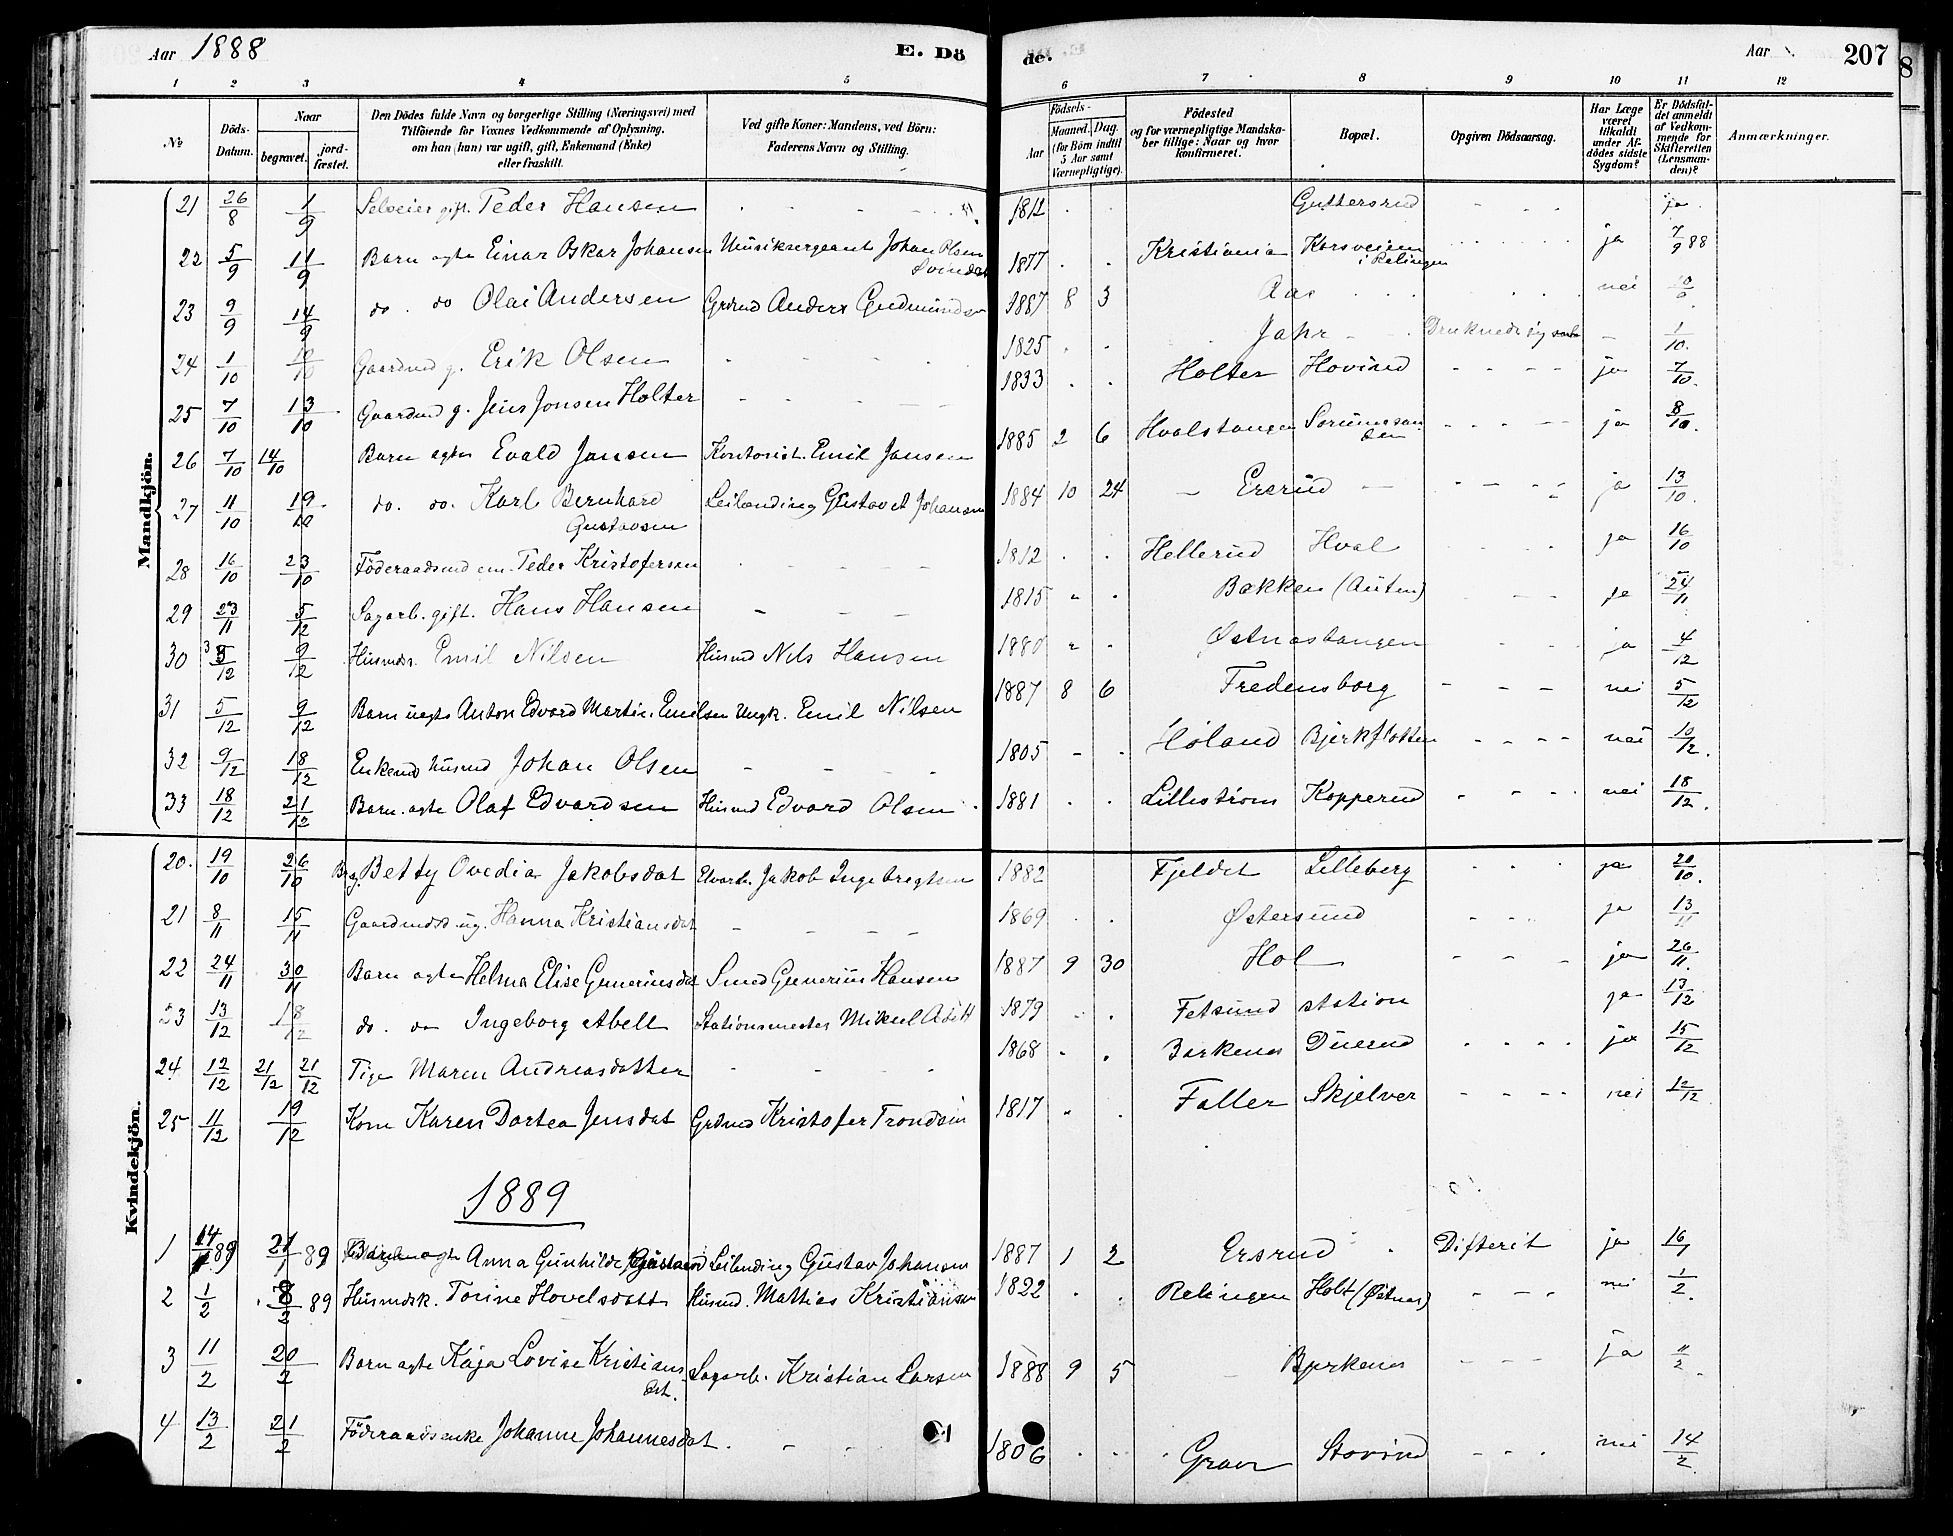 Aar 1888 E. Dö de. Aar 207
1 2 3 4 5 6 7 8 9 10 11 12
No Döds-Datum. Naar begravet. jord-fæstet. Den Dödes fulde Navn og borgerlige Stilling (Næringsvei) med Tilföiende for Voxnes Vedkommende af Oplysning, om han (hun) var ugift, gift, Enkemand (Enke) eller fraskilt. Ved gifte Koner: Mandens, ved Börn: Faderens Navn og Stilling. Födsels- Aar Maaned. Dag. (for Börn indtil 5 Aar samt Værnepligtige). Födested og for værnepligtige Mandska-ber tillige: Naar og hvor konfirmeret. Bopæl. Opgiven Dödsaarsag. Har Læge været tilkaldt under Af-dödes sidste Sygdom? Er Dödsfal-det anmeldt af Vedkom-mende for Skifteretten (Lensman-den)? Anmærkninger.
Mandkjön.
21 26/8 1/9 Selveier gift. Peder Hansen 1812 Guttersrud ja
22 5/9 11/9 Barn ægte Einar Oskar Johansen Musiksergeant Johan Olsen Svindal 1877 Kristiania Korsveien i Relingen ja 7/9 88
23 9/9 14/9 do. do Olai Andersen Grdmd Anders Gudmundsen 1887 8 3 Aas nei 10/9
24 1/10 10/10 Gaardmd g. Erik Olsen 1825 Jahr Druknede sig - 1/10.
25 7/10 13/10 Gaardmd g. Jens Jonsen Holter 1833 Holter Hovind ja 7/10.
26 7/10 14/10 Barn ægte Evald Jansen Kontorist. Emil Jansen 1885 2 6 Hvalstangen Sørumssanden ja 8/10.
27 11/10 19/10 do. do. Karl Bernhard Gustavsen Leilænding Gustav Johansen 1884 10 24 Ersrud ja 13/10.
28 16/10 23/10 Föderaadsmd em. Peder Kristofersen 1812 Hellerud Hval ja 16/10
29 23/11 5/12 Sagarb. gift. Hans Hansen 1815 Bakken (Auten) ja 24/11
30 3/12 9/12 Husmds. Emil Nilsen Husmd Nils Hansen 1880 Østnestangen ja 4/12
31 5/12 9/12 Barn uægte Anton Edvard Martin Emilsen Ungk. Emil Nilsen 1887 8 6 Fredensborg nei 5/12
32 9/12 18/12 Enkemd husmd Johan Olsen 1805 Høland Bjerkflotten nei 10/12.
33 18/12 21/12 Barn. ægte Olaf Edvardsen Husmd Edvard Olsen 1881 Lillestrøm Kopperud nei 18/12.
Kvindekjön.
20. 19/10 26/10 Betty Ovedia Jakobsdat Jakob Ingebregtsen 1882 Fjeldet Lilleberg ja 20/10.
21 8/11 15/11 Gaardmdsd ug. Hanna Kristiansdat 1869 Østersund ja 13/11
22 24/11 30/11 Barn ægte Helma Elise Guneriusdat Smed Gunerius Hansen 1887 9 30 Hol ja 26/11.
23 13/12 18/12 do. do Ingeborg Abell Stationsmester Mikael Abell 1879 Fetsund station ja 13/12
24 12/12 21/12 21/12 Pige Maren Andreasdatter 1868 Duerud ja 15/12
25 11/12 19/12 Kone Karen Dortea Jensdat Grdmd Kristofer Trondsen 1817 Faller Skjelver nei 12/12
1889
1 14/1 89 21/1 89 Barn ægte Anna Gunhilde Gustavsd Leilænding Gustav Johansen 1887 1 2 Ersrud Difterit ja 16/1
2 1/2 8/2 89 Husmdsk. Torine Hovelsdatt Husmd. Mattias Kristiansen 1822 Relingen Holt (Østnes) nei 1/2.
3 11/2 20/2 Barn ægte Kaja Lovise Kristians dat. Sagarb. Kristian Larsen 1888 9 5 Bjerkenes ja 11/2.
4 13/2 21/2 Föderaadsenke Johanne Johannesdat. 1806 Graver Stovind nei 14/2.